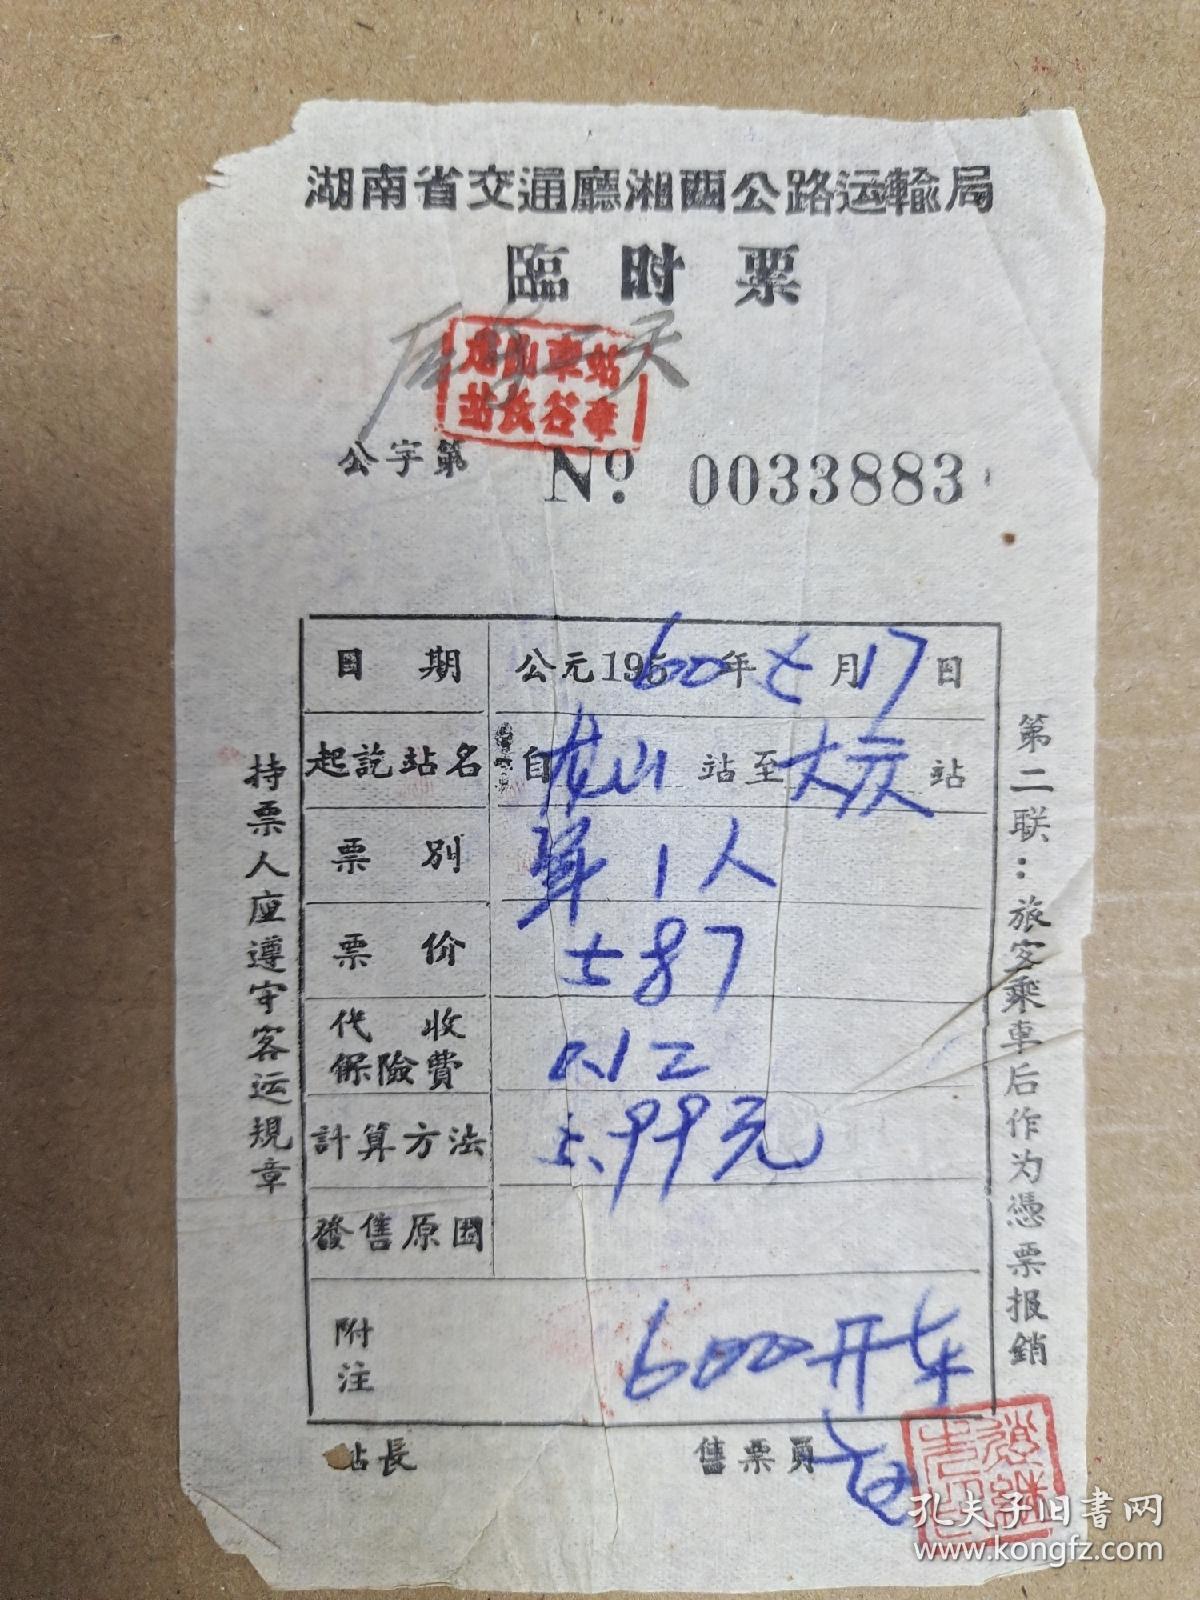 湖南省交通廳湘西公路运輸局
臨时票
龙山車站
站長签章
公字第 No. 0033883
日期 公元195 60年七月17日
起訖站名 自龙山站至大庸站
票別 1人
票价 5.87
代收保險費 0.12
計算方法 5.99元
發售原因
附注 600开车
站長 售票員
持票人应遵守客运規章
第二联：旅客乘車后作为憑票报銷
孔夫子旧书网
www.kongfz.com